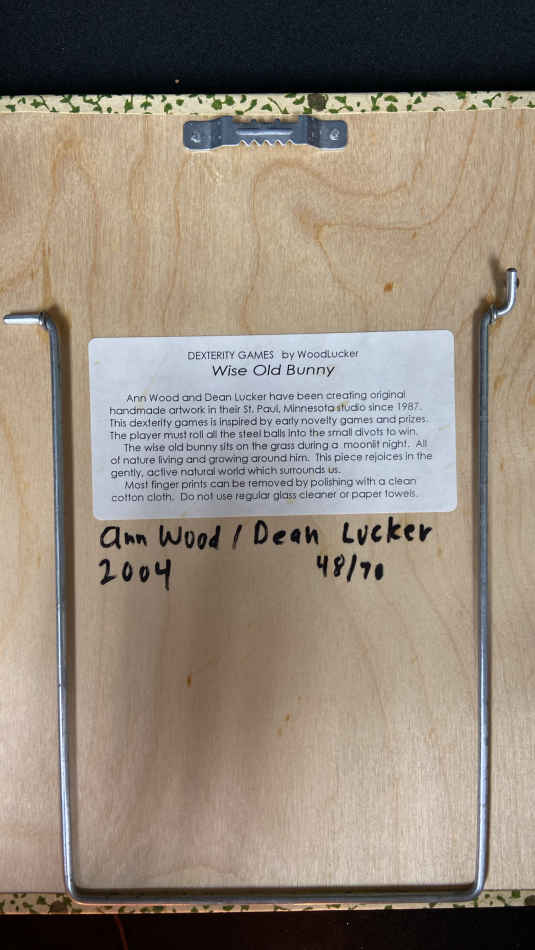 DEXTERITY GAMES by WoodLucker
Wise Old Bunny
Ann Wood and Dean Lucker have been creating original
handmade artwork in their St. Paul, Minnesota studio since 1987.
This dexterity games is inspired by early novelty games and prizes.
The player must roll all the steel balls into the small divots to win.
The wise old bunny sits on the grass during a moonlit night. All
of nature living and growing around him. This piece rejoices in the
gently, active natural world which surrounds us.
Most finger prints can be removed by polishing with a clean
cotton cloth. Do not use regular glass cleaner or paper towels.
Ann Wood / Dean Lucker
2004 48/70